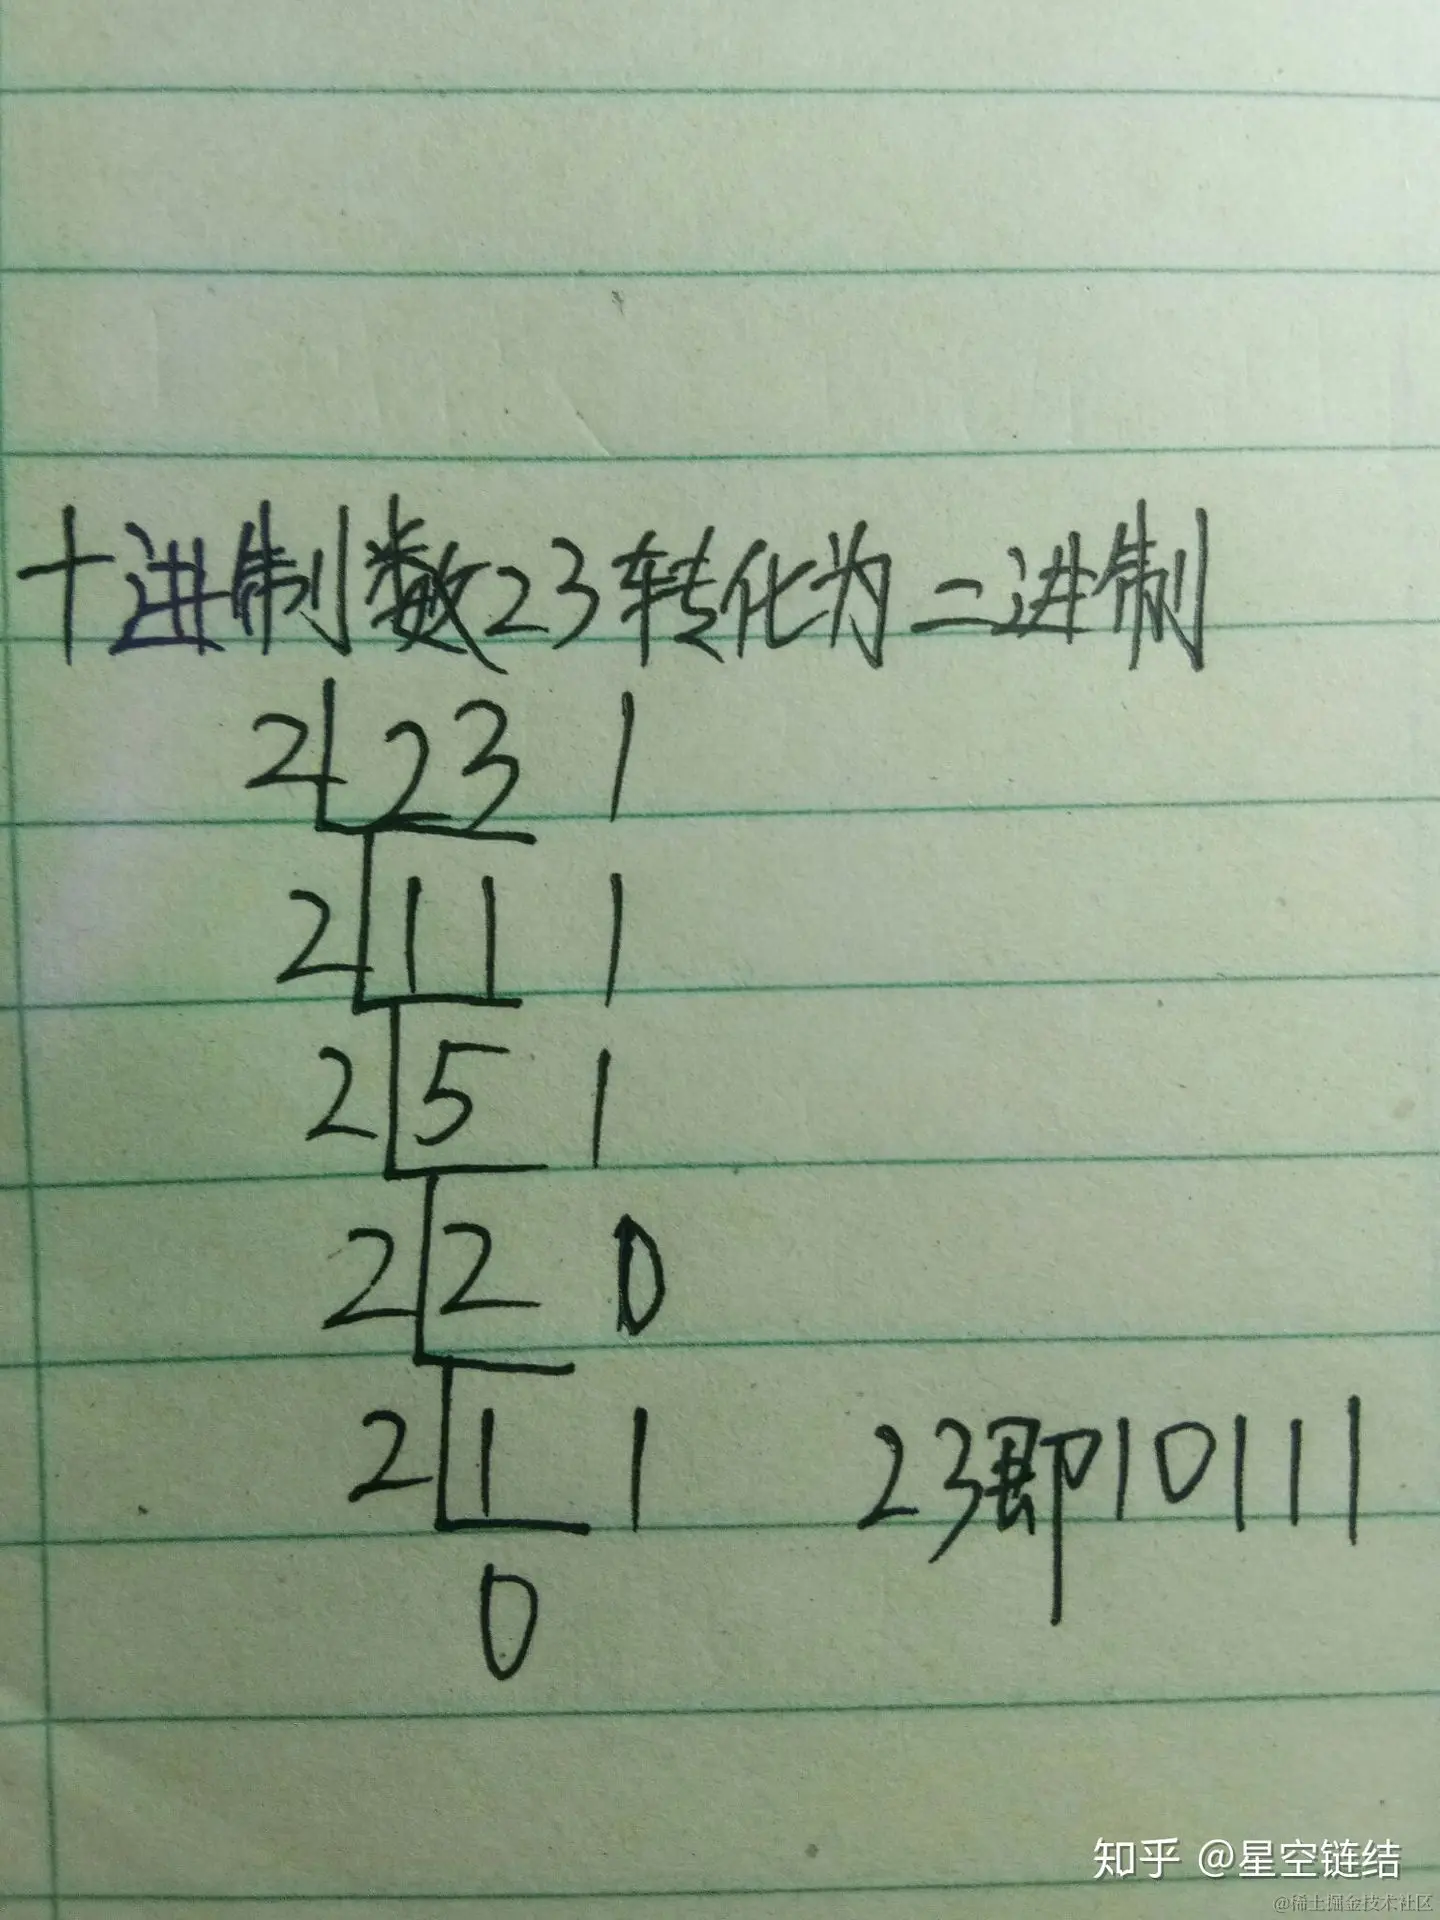 十进制数23转化为二进制
2 23 1
2 11 1
2 5 1
2 2 0
2 1 1 23即10111
0
知乎 @星空链结
@稀土掘金技术社区